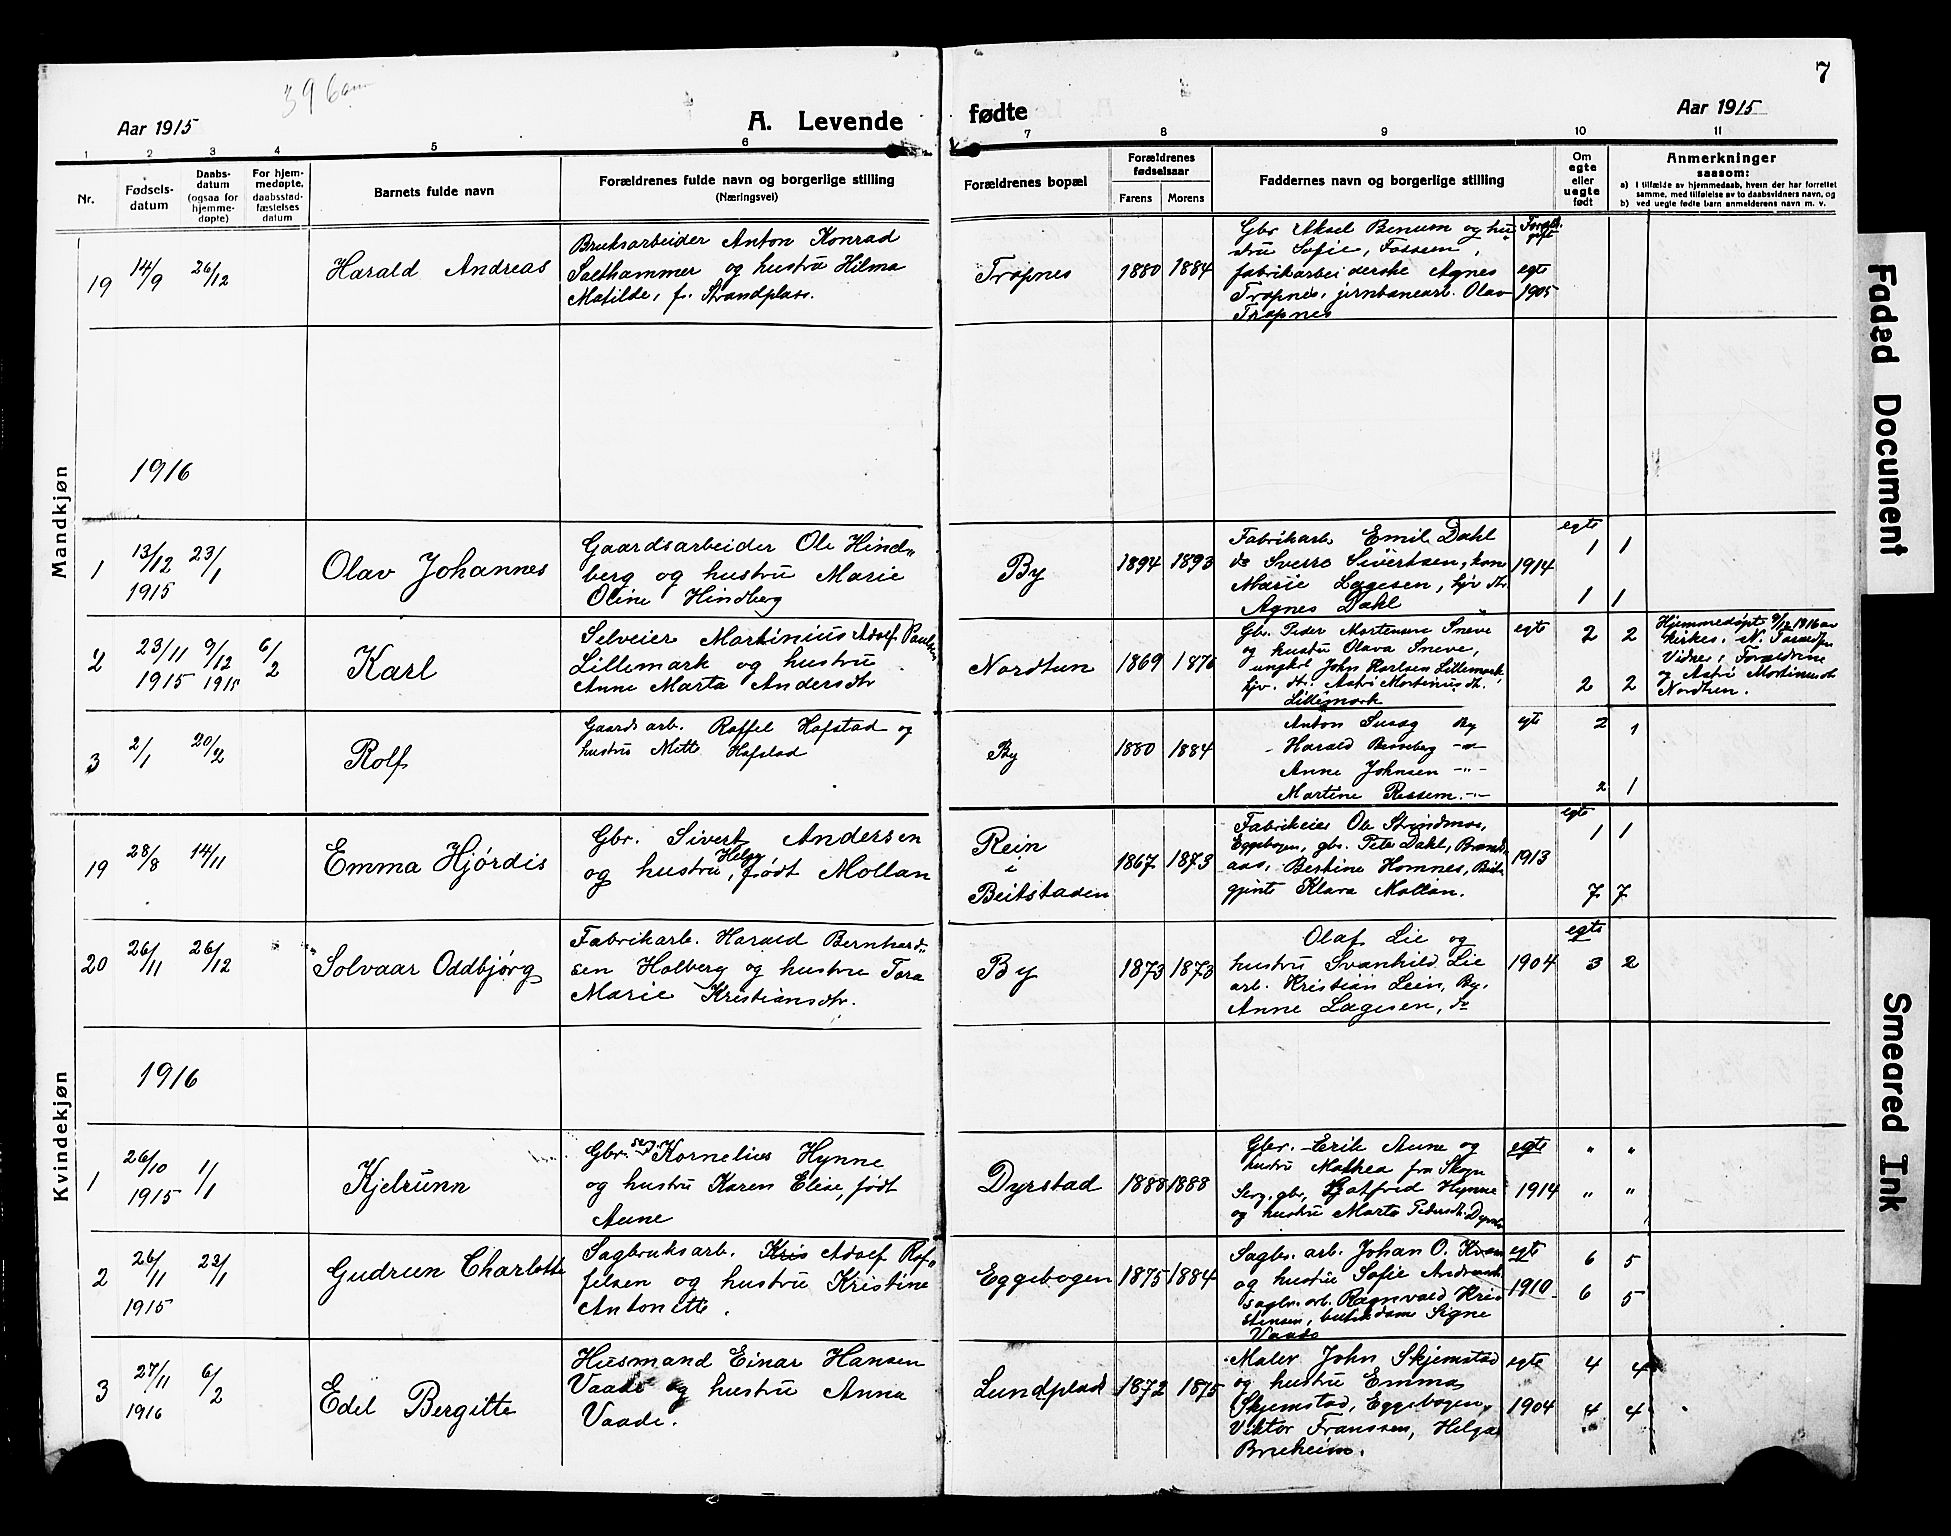 396
7
Aar 1915
A. Levende
fødte
Aar 1915
1 2 3 4 5 6 7 8 9 10 11
Nr.
Fødsels-
datum
Daabs-
datum
(ogsaa for
hjemme-
døpte)
For hjem-
medøpte,
daabsstad-
fæstelses
datum
Barnets fulde navn
Forældrenes fulde navn og borgerlige stilling
(Næringsvei)
Forældrenes bopæl
Forældrenes
fødselsaar
Farens
Morens
Faddernes navn og borgerlige stilling
Om
egte
eller
uegte
født
Anmerkninger
saasom:
a) i tilfælde av hjemmedaab, hvem der har forrettet
samme, med tilføielse av to daabsvidners navn, og
b) ved uegte fødte barn anmelderens navn m. v.
Mandkjøn
19 14/9 26/12
Harald Andreas
Bruksarbeider Anton Konrad
Salthammer og hustru Hilma
Matilde, f. Strandplass.
Trøpnes
1880 1884
Gbr Aksel Benum og hu-
stru Sofie, Fossem,
fabrikarbeiderske Agnes
Trøpnes, jernbanearb. Olav
Trøpnes
egte
1905
1916
1 13/12 23/1
1915
Olav Johannes
Gaardsarbeider Ole Hind-
berg og hustru Marie
Oline Hindberg
By
1894 1893
Fabrikarb. Emil Dahl
do Sverre Sivertsen, kone
Marie Lægesen, tjv. dr.
Agnes Dahl
1914
egte
1 1
1 1
2 23/11 9/12 6/2
1915 1915
Karl
Selveier Martinius Adolf Paulsen
Lillemark og hustru
Anne Marta Andersdtr
Nordtun
1869 1876
Gbr. Peder Mortensen Sneve
og hustru Olava Sneve,
ungkl John Karlsen Lillemark,
tjv. dr. Astri Martinusdt.
Lillemark
egte
2 2
2 2
Hjemmedøpt 9/12 1916 av
kirkes. N.
Vidner: Forældrene
og Astri Martinusdt
Nordtun.
3 2/1 20/2
Rolf
Gaards arb. Roffel Hofstad og
hustru Mette Hofstad
By
1880 1884
Anton Susæg By
Harald
Anne Johnsen -"-
Martine Ressem -"-
egte
2 1
2 1
Kvindekjøn
19 28/8 14/11
Emma Hjórdis
Gbr. Sivert Andersen
og hustru Helga, født Mollan
Rein
i
Beitstaden
1867 1873
Fabrikeier Ole Strindmo,
Eggebogen, gbr. Peter Dahl, Brand-
aas, Berstine Homnes,
Klara Mollan.
1913
egte
1 1
7 7
20 26/11 26/12
Solvaar Oddbjørg
Fabrikarb. Harald Bernhard-
sen Holberg og hustru Tora
Marie Kristiansdtr.
By
1873 1873
Olaf Lie og
hustru Svanhild Lie
arb. Kristian Lein, By.
Anne Lægesen, do
1904
egte
3 2
1916
1 26/10 1/1
1915
Kjelrunn
Gbr. Kornelius Hynne
og hustru Karen Elise, født
Aune
Dyrstad
1888 1888
Gbr. Erik Aune og
hustru Mathea fra Skogn
Serg. gbr. Hynne
og hustru Marta Pedersdtr. Dyrstad
egte
1914
" "
" "
2 26/11 23/1
1915
Gudrun Charlotte
Sagbruksarb. Kris Adolf Rof-
felsen og hustru Kristine
Antonette.
Eggebogen
1875 1884
Sagbr. arb. Johan O. Kvam
og hustru Sofie
sagbr. arb. Ragnvald Kris-
tensen, butikdame Signe
Vaade
egte
1910
6 5
6 5
3 27/11 6/2
1916
Edel Bergitte
Husmand Einar Hansen
Vaade og hustru Anna
Vaade.
Lundplad
1872 1875
Maler John Skjemstad
og hustru Emma
Skjemstad, Eggebogen,
Viktor Franssen, Helga
Brueheim.
egte
1904
4 4
4 4
Faded Document
Smeared Ink